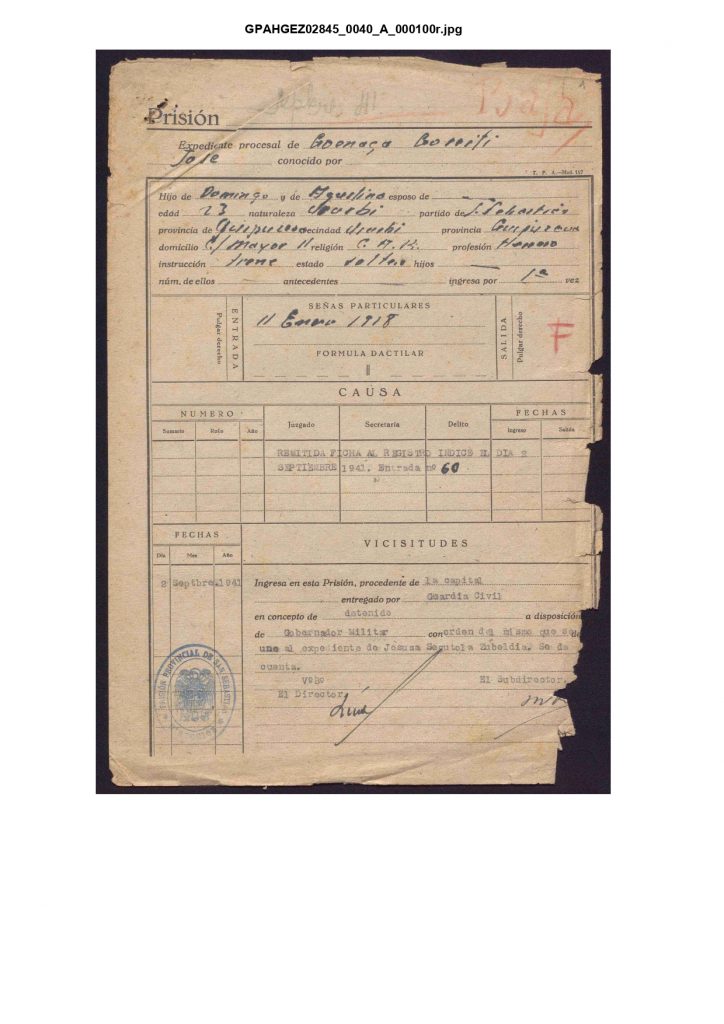 GPAHGEZ02845_0040_A_000100r.jpg
Baja
Prisión
Expediente procesal de Goenaga Gorriti
José conocido por
T. P. A.—Mod. 117
Hijo de Domingo y de Agustina esposo de —
edad 23 naturaleza partido de S. Sebastián
provincia de Guipúzcoa vecindad provincia Guipúzcoa
domicilio C/ Mayor 11 religión C. A. R. profesión
instrucción tiene estado soltero hijos —
núm. de ellos — antecedentes — ingresa por 1ª vez
SEÑAS PARTICULARES
11 Enero 1918
ENTRADA
Pulgar derecho
FORMULA DACTILAR
SALIDA
Pulgar derecho
F
CAUSA
NUMERO Juzgado Secretaría Delito FECHAS
Sumario Rollo Año Ingreso Salida
REMITIDA FICHA AL REGISTRO INDICE EL DIA 2
SEPTIEMBRE 1941. Entrada nº 60
FECHAS
VICISITUDES
Día Mes Año
2 Septbre. 1941 Ingresa en esta Prisión, procedente de la capital
entregado por Guardia Civil
en concepto de detenido a disposición
de Gobernador Militar con orden del mismo que se
une al expediente de Jesusa Segutola Zubeldia. Se da
cuenta.
VºBº El Subdirector,
El Director,
PRISIÓN PROVINCIAL DE SAN SEBASTIAN